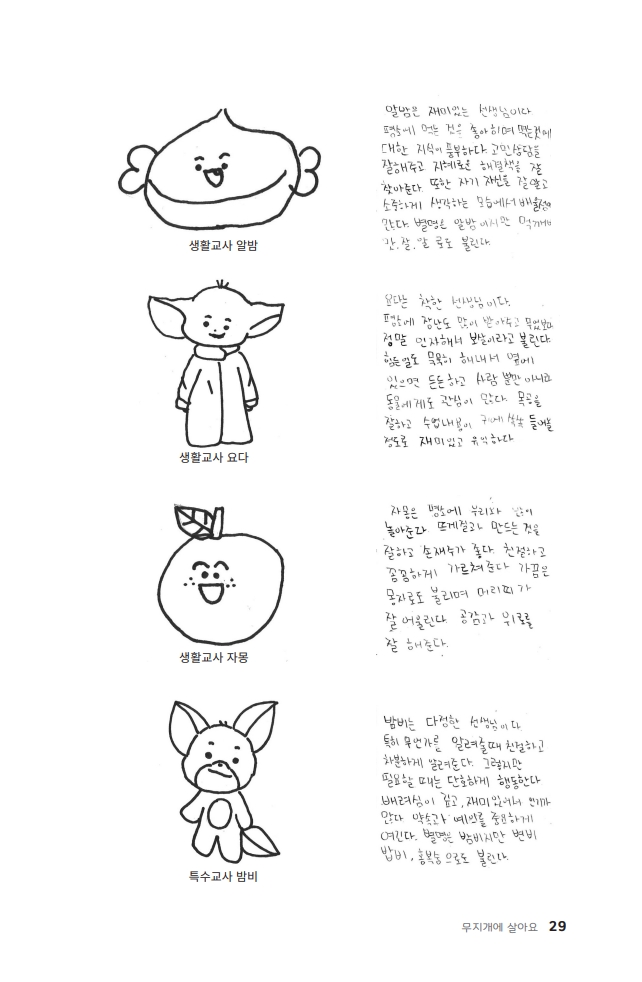 알밤은 재미있는 선생님이다
평상시에 먹는 것을 좋아하며 먹는것에
대한 지식이 풍부하다. 고민상담을
잘해주고 지혜로운 해결책을 잘
찾아준다. 또한 자기 자신을 잘알고
소중하게 생각하는 모습에서 배울점이
많다. 별명은 알밤이지만
로도 불린다.
생활교사 알밤
요다는 착한 선생님이다.
평상시에 장난도 많이 받아주고
정말 인자해서 보살이라고 불린다.
힘든일도 묵묵히 해내서 옆에
있으면 든든하고 사람 뿐만 아니라
동물에게도 관심이 많다. 목공을
잘하고 수업내용이 귀에 쏙쏙 들어올
정도로 재미있고 유익하다
생활교사 요다
자몽은 평소에 우리와 많이
놀아준다. 뜨게질과 만드는 것을
잘하고 손재주가 좋다. 친절하고
꼼꼼하게 가르쳐준다 가끔은
몽자로도 불리며 머리띠가
잘 어울린다. 공감과 위로를
잘 해준다.
생활교사 자몽
밤비는 다정한 선생님이다
특히 무언가를 알려줄때 친절하고
차분하게 알려준다. 그렇지만
필요할 때는 단호하게 행동한다
배려심이 깊고, 재미있어서 인기가
많다 약속과 예의를 중요하게
여긴다. 별명은 밤비지만 변비
밥비, 으로도 불린다.
특수교사 밤비
무지개에 살아요 29